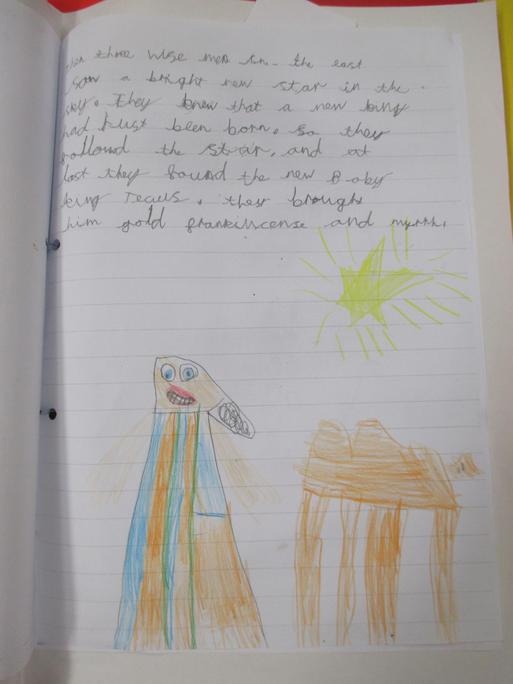 then three wise men in the east
saw a bright new star in the
sky. They knew that a new king
had Just been born. so they
follound the star, and at
last they found the new Baby
king Jesus. their brought
him gold frankincense and myrrh.